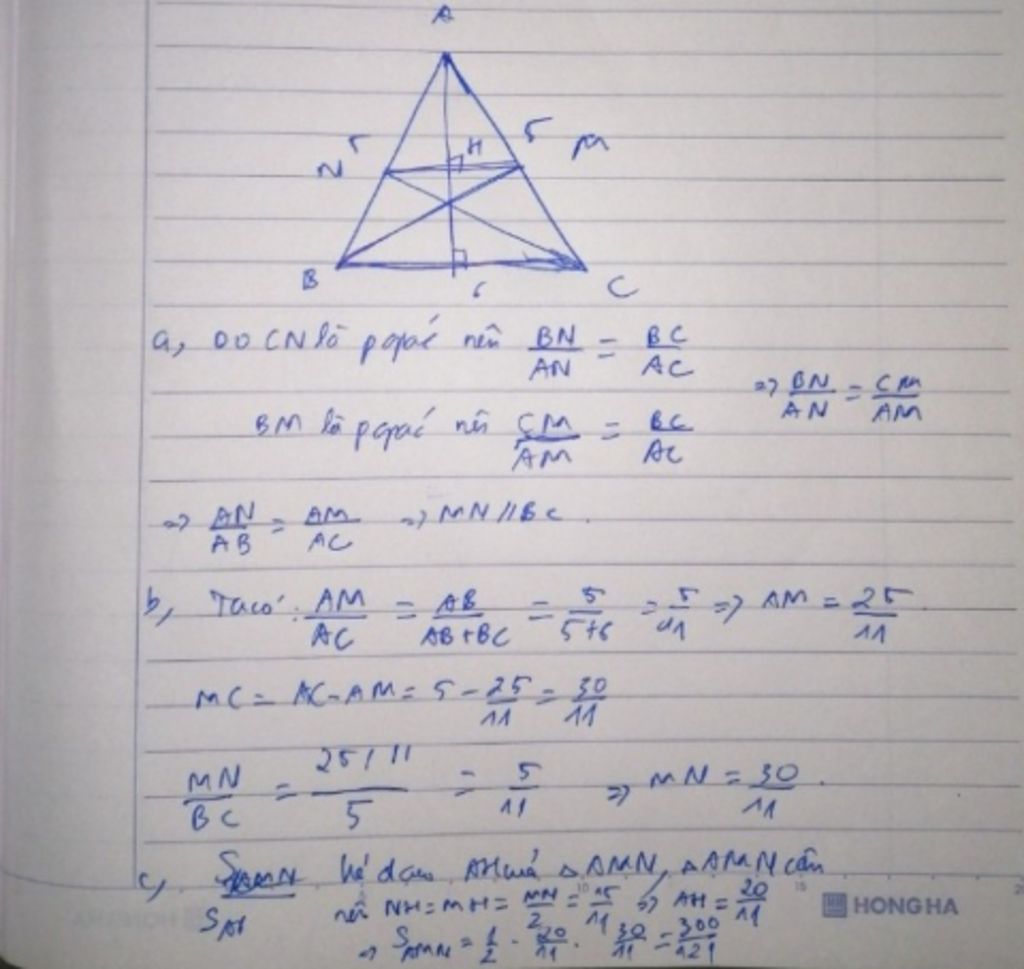 A
N 5 H 5 M
B 6 C
a, Do CN là pgiác nên BN/AN = BC/AC
=> BN/AN = CM/AM
BM là pgiác nên CM/AM = BC/AC
=> AN/AB = AM/AC => MN // BC.
b, Ta có: AM/AC = AB/(AB+BC) = 5/(5+6) = 5/11 => AM = 25/11.
MC = AC - AM = 5 - 25/11 = 30/11
MN/BC = (25/11)/5 = 5/11 => MN = 30/11.
c, kẻ AH △AMN, △AMN cân
nên NH = MH = MN/2 = 15/11 => AH = 20/11
=> S_AMN = 1/2 . 20/11 . 30/11 = 300/121
HONG HA